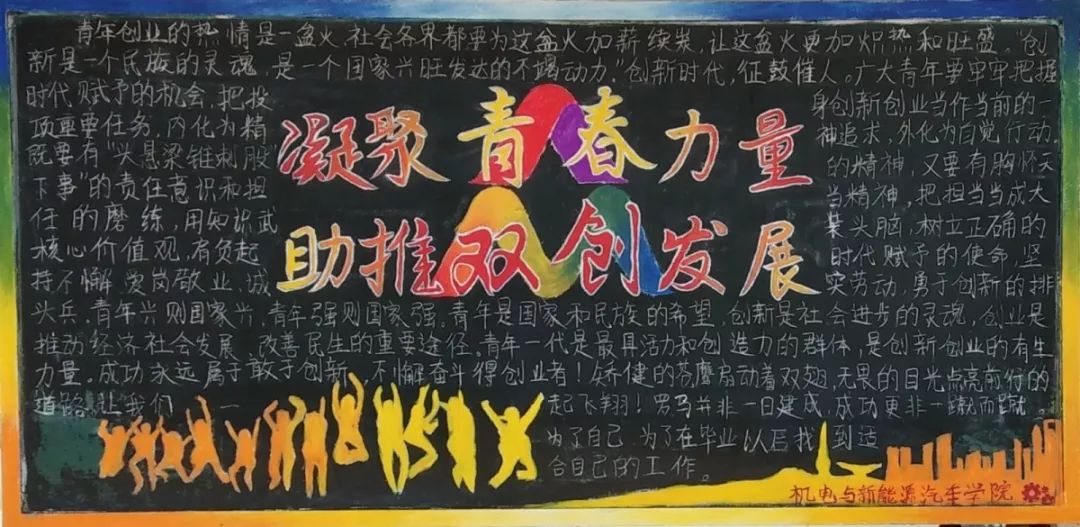 青年创业的热情是一盆火,社会各界都要为这盆火加薪续炭,让这盆火更加炽热和旺盛。"创
新是一个民族的灵魂,是一个国家兴旺发达的不竭动力。"创新时代,征鼓催人。广大青年要牢牢把握
凝聚青春力量
助推双创发展
时代赋予的机会,把投身创新创业当作当前的一
项重要任务,内化为精神追求,外化为自觉行动
既要有"头悬梁锥刺股"的精神,又要有胸怀
下事"的责任意识和担当精神,把担当当成大
任的磨练,用知识武装头脑,树立正确的
核心价值观,肩负起时代赋予的使命,坚
持不懈爱岗敬业、诚实劳动,勇于创新的排
头兵。青年兴则国家兴,青年强则国家强。青年是国家和民族的希望,创新是社会进步的灵魂,创业是
推动经济社会发展、改善民生的重要途径。青年一代是最具活力和创造力的群体,是创新创业的有生
力量。成功永远属于敢于创新、不懈奋斗得创业者!矫健的翅膀扇动着双翅,无畏的目光点亮前行的
道路,让我们一一起飞翔!罗马并非一日建成,成功更非一蹴而蹴。
为了自己,为了在毕业以后找到适
合自己的工作。
机电与新能源汽车学院